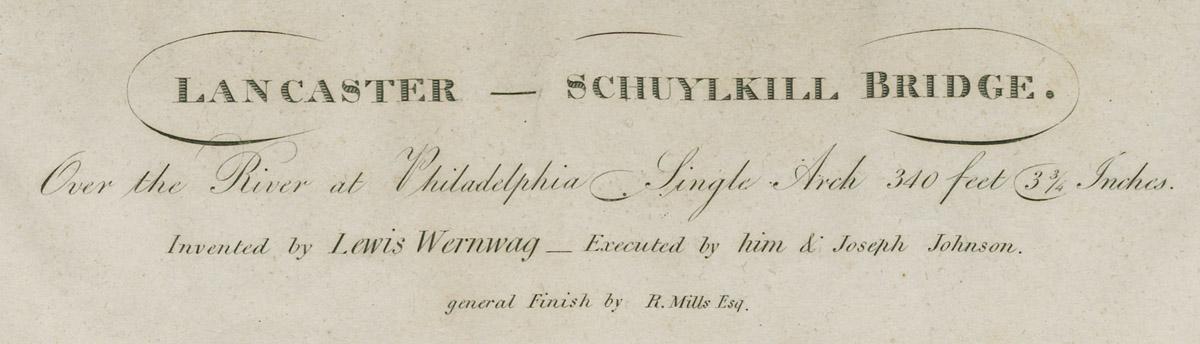 LANCASTER — SCHUYLKILL BRIDGE.
Over the River at Philadelphia Single Arch 340 feet 3¾ Inches.
Invented by Lewis Wernwag — Executed by him & Joseph Johnson.
general Finish by R. Mills Esq.